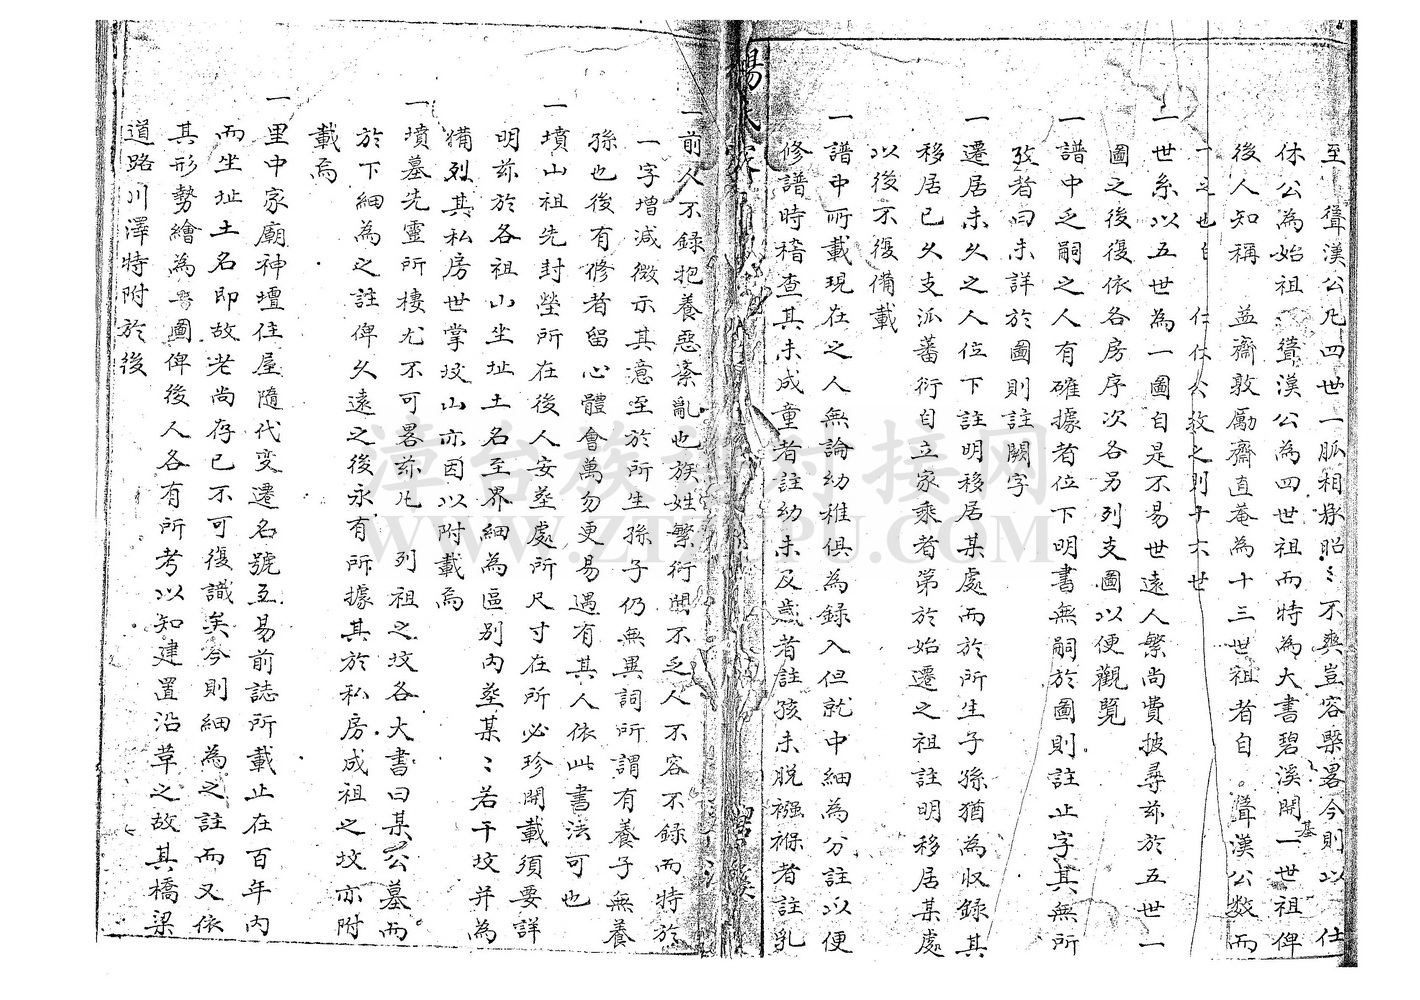 至 聳漢公凡四世一脈相承昭〻不爽豈容槩畧今則以 仕
休公為始祖 聳漢公為四世祖而特為大書碧溪開基一世祖俾
後人知稱 益齋敦勵齋直菴為十三世祖者自 聳漢公数而
之也自 仕休公数之則十六世
一世系以五世為一圖自是不易世遠人繁尚費披尋茲於五世一
圖之後復依各房序次各另列支圖以便觀覧
一譜中之嗣之人有確據者位下明書無嗣於圖則註止字其無所
攷者曰未詳於圖則註闕字
一遷居未久之人位下註明移居某處而於所生子孫猶為收録其
移居已久支派蕃衍自立家乘者第於始遷之祖註明移居某處
以後不復備載
一譜中所載現在之人無論幼稚俱為録入但就中細為分註以便
修譜時稽查其未成童者註幼未及歲者註孩未脱襁褓者註乳
楊氏
碧溪
一前人不録抱養惡紊亂也族姓繁衍間不乏人不容不録而特於
一字增減微示其意至於所生孫子仍無異詞所謂有養子無養
孫也後有修者留心體會萬勿更易遇有其人依此書法可也
一墳山祖先封塋所在後人安塟處所尺寸在所必珍開載須要詳
明茲於各祖山坐址土名至界細為區别内塟某〻若干坟并為
備列其私房世掌坟山亦因以附載焉
一墳墓先靈所棲尤不可畧茲凡 列祖之坟各大書曰某公墓而
於下細為之註俾久遠之後永有所據其於私房成祖之坟亦附
載焉
一里中家廟神壇住屋隨代变遷名號互易前誌所載止在百年内
而坐址土名即故老尚存已不可復識矣今則細為之註而又依
其形勢繪為圖俾後人各有所考以知建置沿革之故其橋梁
道路川澤特附於後
漳台族谱对接网
WWW.ZTZUPU.COM